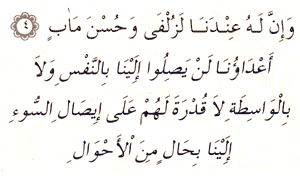 وَإِنَّ لَهُ عِنْدَنَا لَزُلْفَى وَحُسْنَ مَاٰبٍ ٤
أَعْدَاؤُنَا لَنْ يَصِلُوا إِلَيْنَا بِالنَّفْسِ وَلاَ
بِالْوَاسِطَةِ لاَ قُدْرَةَ لَهُمْ عَلَى إِيصَالِ السُّوءِ
إِلَيْنَا بِحَالٍ مِنَ الْأَحْوَالِ